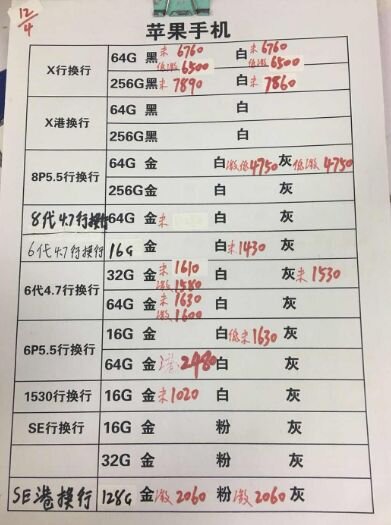 12/4
苹果手机
X行换行 64G 黑 未6760 低激6500 白 未6760 低激6500
256G 黑 未7890 白 未7860
X港换行 64G 黑 白
256G 黑 白
8P5.5行换行 64G 金 白 激低4750 灰 低激4750
256G 金 白 灰
8代4.7行换行 64G 金 未 白 灰
6代4.7行换行 16G 金 白 未1430 灰
6代4.7行换行 32G 金 未1610 激1580 白 灰 未1530
64G 金 未1630 激1600 白 灰
6P5.5行换行 16G 金 白 低未1630 灰
64G 金 港2480 白 灰
1530行换行 16G 金 未1020 白 灰
SE行换行 16G 金 粉 灰
32G 金 粉 灰
SE港换行 128G 金 激2060 粉 激2060 灰